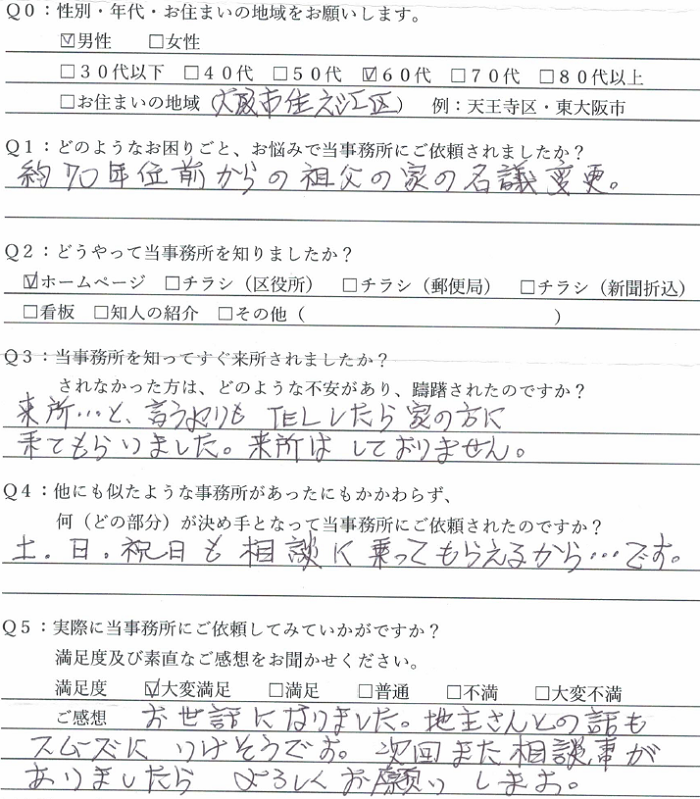 Q0:性別・年代・お住まいの地域をお願いします。
☑男性 □女性
□30代以下 □40代 □50代 ☑60代 □70代 □80代以上
□お住まいの地域(大阪市住之江区) 例:天王寺区・東大阪市
Q1:どのようなお困りごと、お悩みで当事務所にご依頼されましたか?
約70年位前からの祖父の家の名議変更。
Q2:どうやって当事務所を知りましたか?
☑ホームページ □チラシ(区役所) □チラシ(郵便局) □チラシ(新聞折込)
□看板 □知人の紹介 □その他( )
Q3:当事務所を知ってすぐ来所されましたか?
されなかった方は、どのような不安があり、躊躇されたのですか?
来所…と、言うよりも TELしたら家の方に
来てもらいました。来所は しておりません。
Q4:他にも似たような事務所があったにもかかわらず、
何(どの部分)が決め手となって当事務所にご依頼されたのですか?
土.日.祝日も 相談に 乗ってもらえるから…です。
Q5:実際に当事務所にご依頼してみていかがですか?
満足度及び素直なご感想をお聞かせください。
満足度 ☑大変満足 □満足 □普通 □不満 □大変不満
ご感想 お世話になりました。地主さんとの話も
スムーズに いけそうです。次回また相談事が
ありましたら よろしくお願い します。